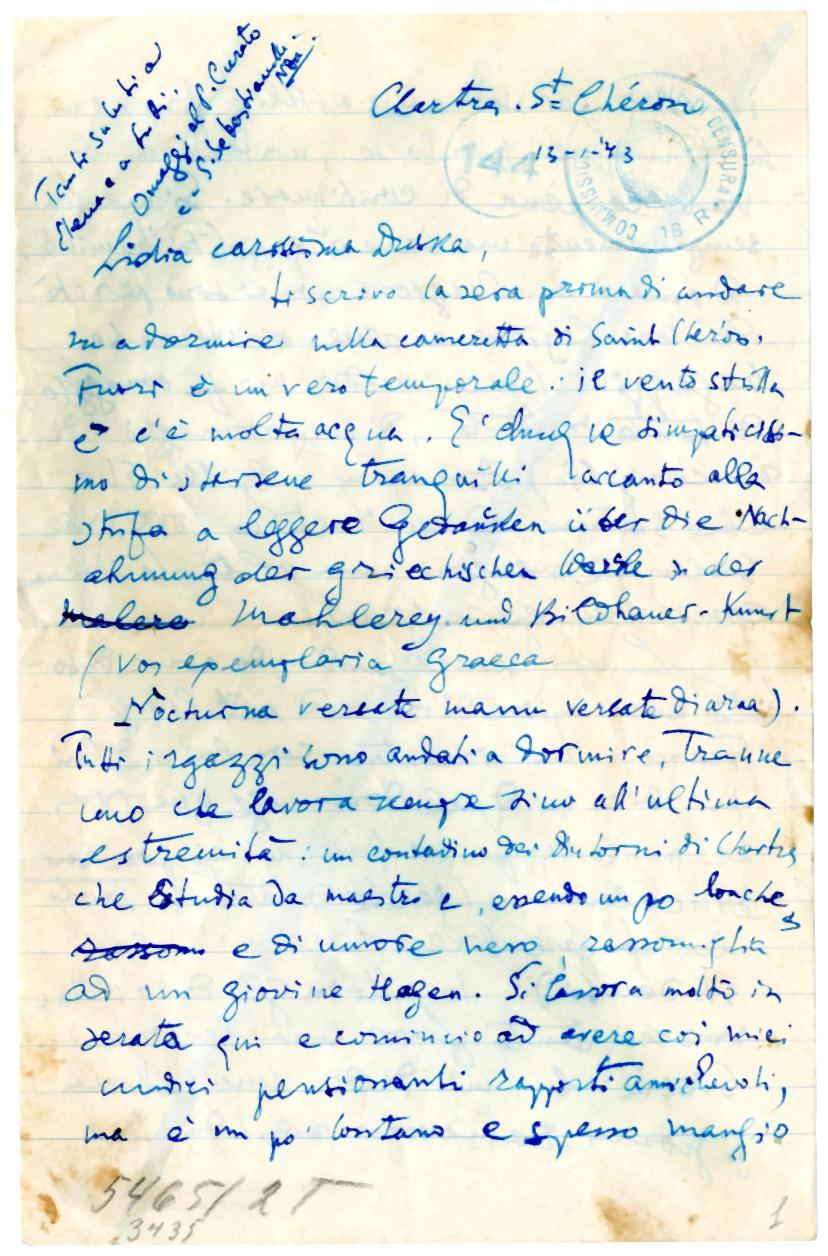 Tanti saluti a
Elena e a tutti.
Omaggi al P. Curato
e S. Sebastiano
Chartres. St Chéron
13-1-'43
144
COMMISSIO DI CENSURA
18. R
Lidia carissima Duska,
ti scrivo la sera prima di andare
a dormire nella cameretta di Saint Chéron.
Fuori è un vero temporale: il vento strilla
e c'è molta acqua. E' dunque simpaticissi-
mo di starsene tranquilli accanto alla
stufa a leggere Gedanken über die Nach-
ahmung der griechischen Werke in der
Malere Mahlerey und Bildhauer-Kunst
(vos exemplaria Graeca
Nocturna versate manu versate diurna).
Tutti i ragazzi sono andati a dormire, tranne
uno che lavora sempre sino all'ultima
estremità: un contadino dei dintorni di Chartres
che studia da maestro e, essendo un po louche
rassom e di umore nero rassomiglia
ad un giovine Hagen. Si lavora molto in
serata qui e comincio ad avere coi miei
undici pensionanti rapporti amichevoli,
ma è un po' lontano e spesso mangio
5465/2 T
3435
1